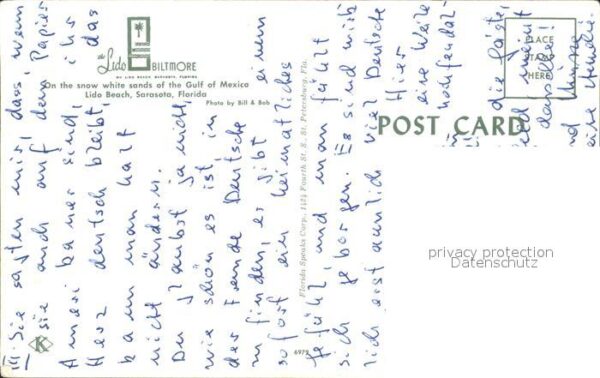 the Lido BILTMORE
ON LIDO BEACH SARASOTA, FLORIDA
On the snow white sands of the Gulf of Mexico
Lido Beach, Sarasota, Florida
Photo by Bill & Bob
PLACE
STAMP
HERE
POST CARD
Florida Speaks Corp., St. Petersburg, Fla.
K
6975
privacy protection
Datenschutz
III. Sie sagten mir, dass, wenn
sie auch auf dem Papier
Amerikaner sind, ihr
Herz deutsch bleibt, das
kann man halt
nicht ändern.
Du glaubst ja nicht,
wie schön es ist in
der Fremde Deutsche
zu finden, es gibt einem
sofort ein heimatliches
Gefühl, und man fühlt
sich geborgen. Es sind wirk-
lich erstaunlich viel Deutsche
Hier
eine Weile
die Gäste,
und